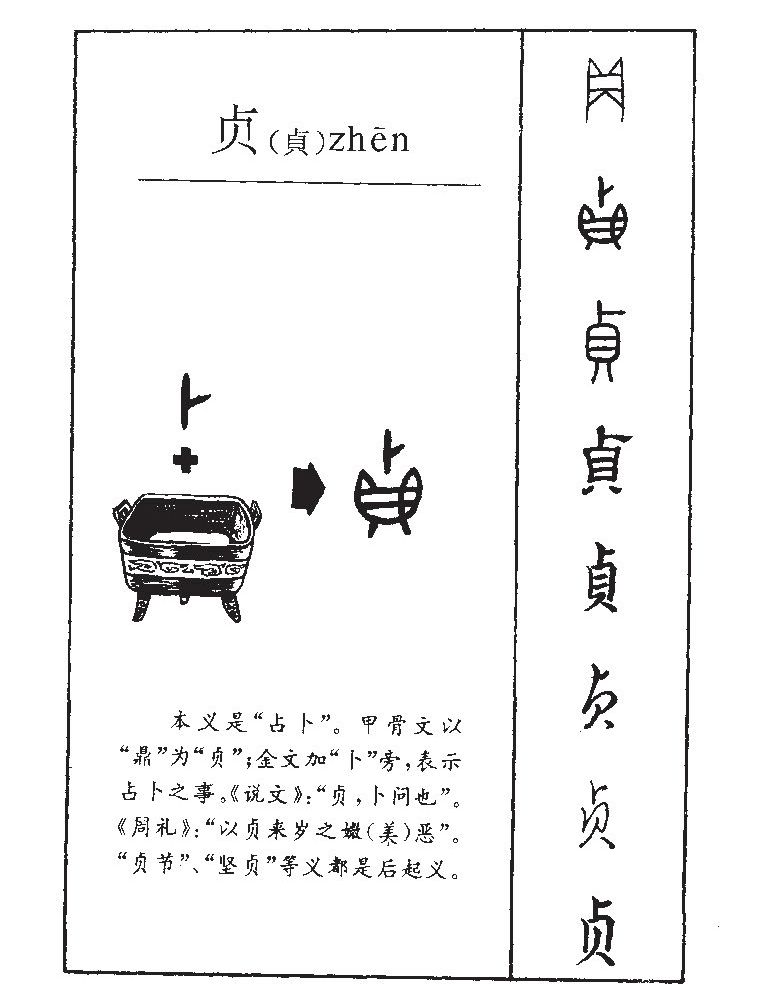 贞(貞)zhēn
卜
+
貞
本义是“占卜”。甲骨文以
“鼎”为“贞”;金文加“卜”旁,表示
占卜之事。《说文》:“贞,卜问也”。
《周礼》:“以贞来岁之媺(美)恶”。
“贞节”、“坚贞”等义都是后起义。
貞
貞
貞
貞
贞
贞
贞